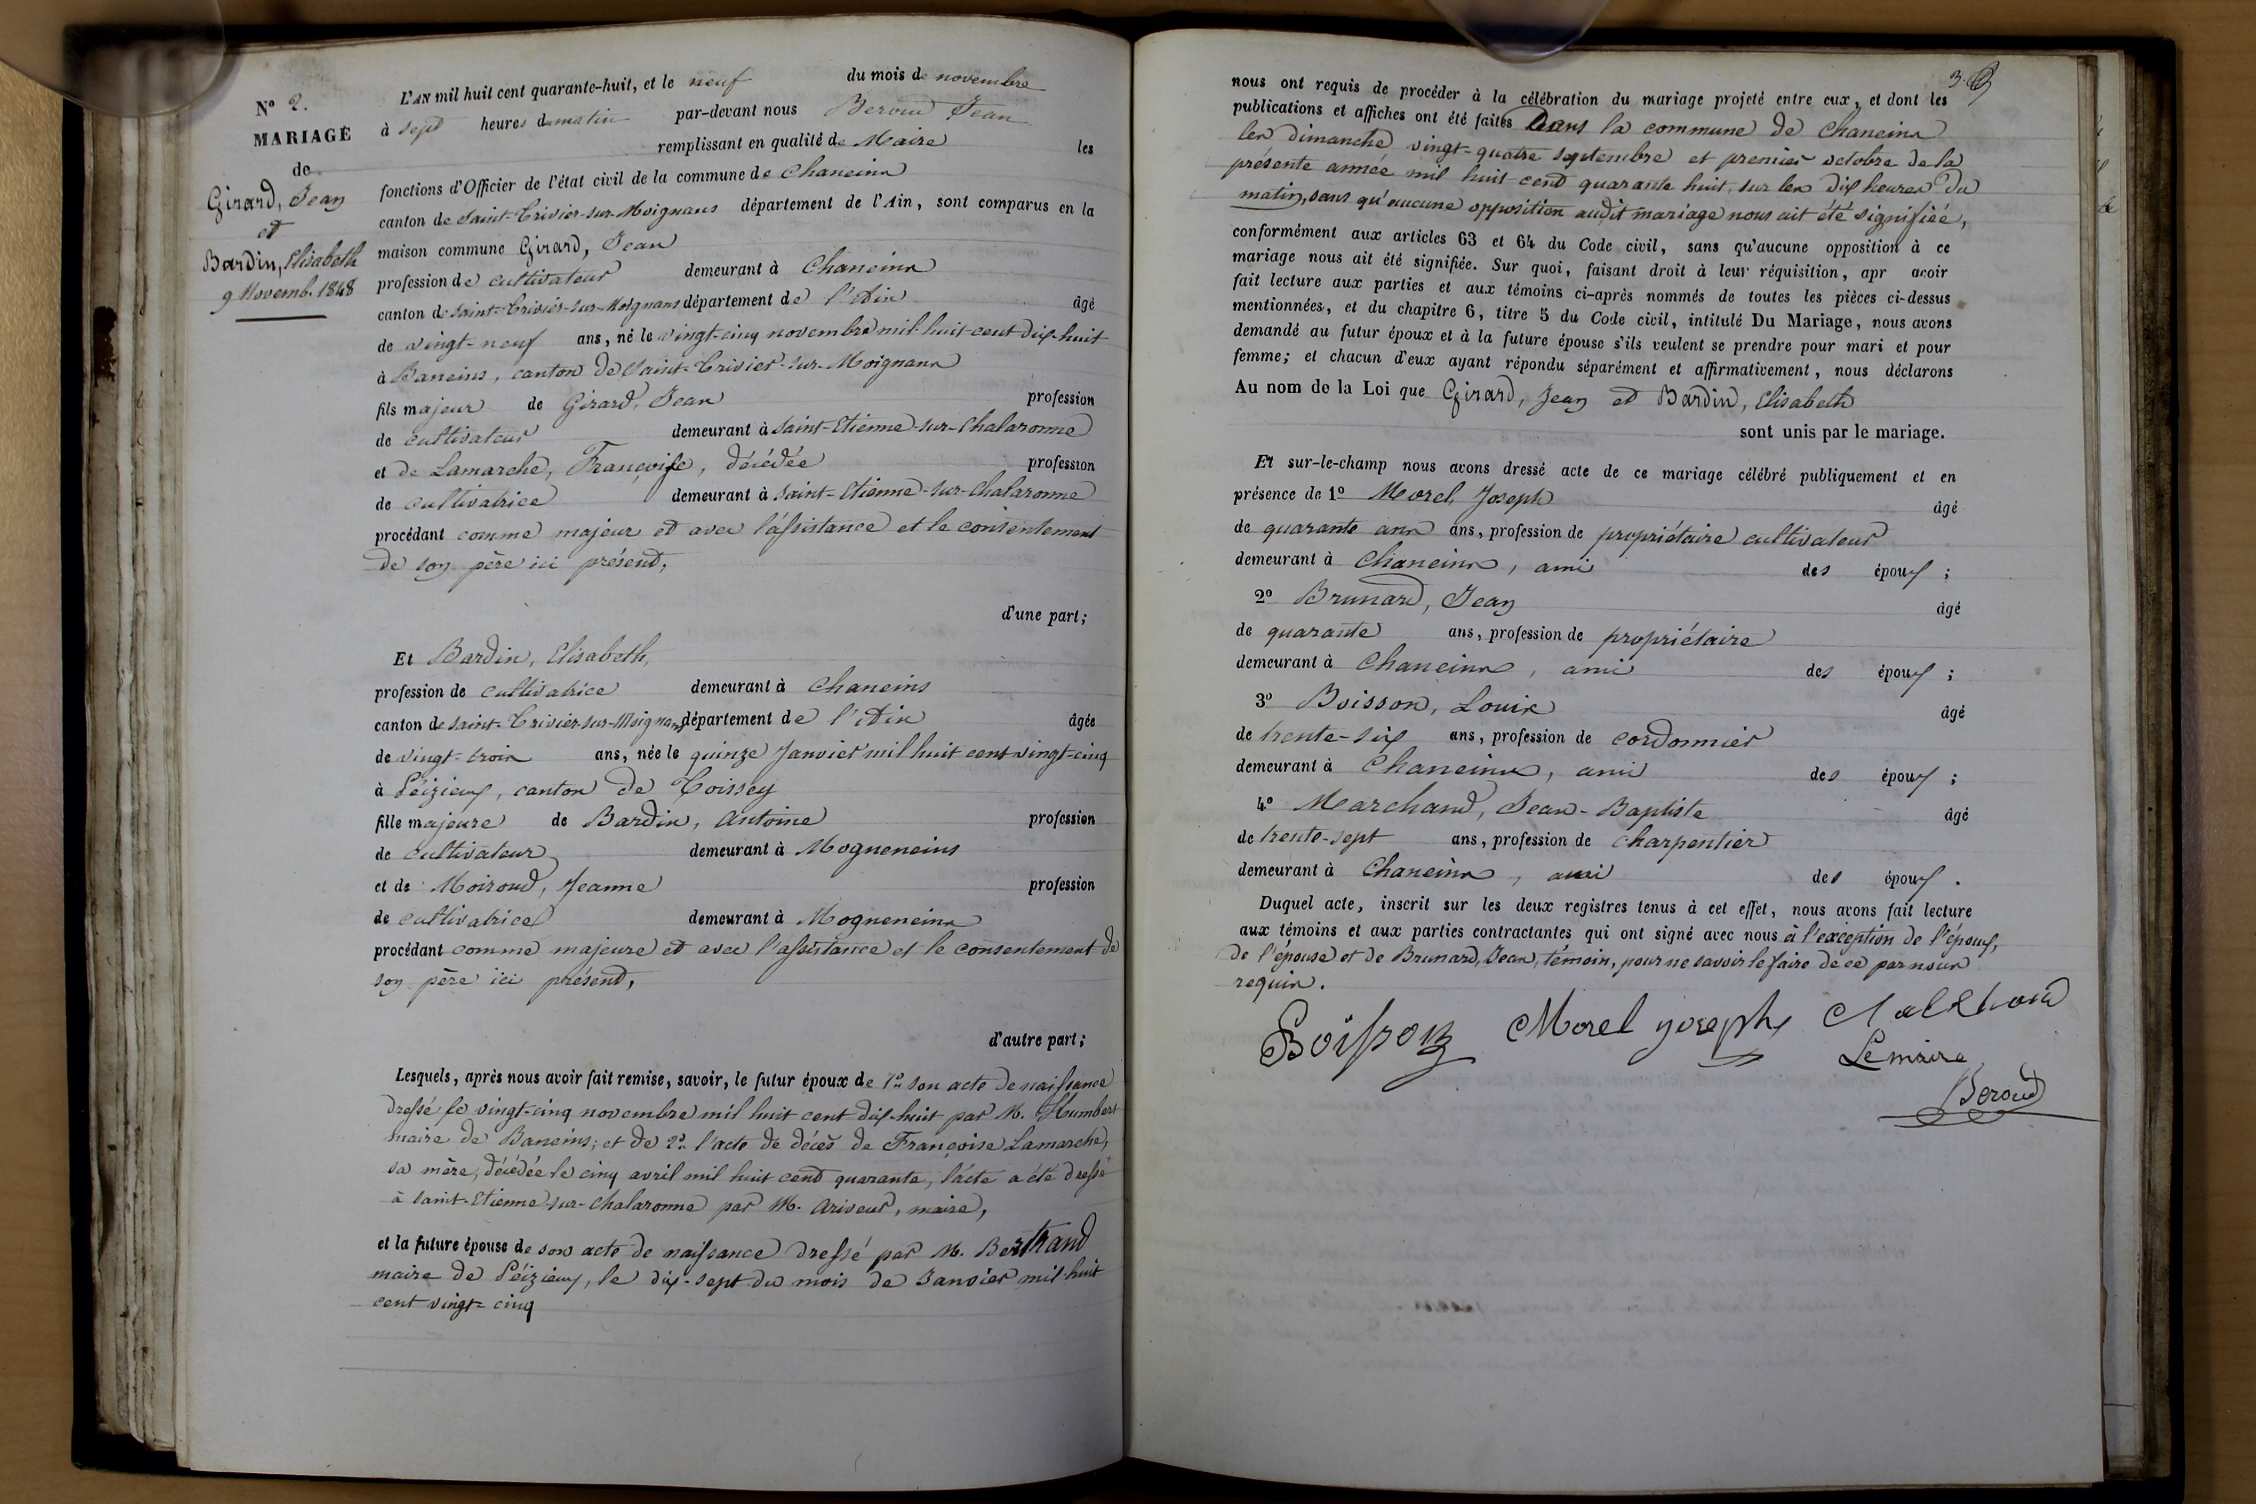 N° 2.
MARIAGE
de
Girard, Jean
et
Bardin, Elisabeth
9 Novemb. 1848
L'AN mil huit cent quarante-huit, et le neuf du mois de novembre
à sept heures du matin par-devant nous Beroud Jean
remplissant en qualité de Maire les
fonctions d'Officier de l'état civil de la commune de Chaneins
canton de Saint-Trivier-sur-Moignans département de l'Ain, sont comparus en la
maison commune Girard, Jean
profession de cultivateur demeurant à Chaneins
canton de Saint-Trivier-sur-Moignans département de l'Ain âgé
de vingt-neuf ans, né le vingt-cinq novembre mil huit cent dix-huit
à Baneins, canton de Saint-Trivier-sur-Moignans
fils majeur de Girard, Jean profession
de cultivateur demeurant à Saint-Etienne-sur-Chalaronne
et de Lamarche, Françoise, décédée profession
de cultivatrice demeurant à Saint-Etienne-sur-Chalaronne
procédant comme majeur et avec l'assistance et le consentement
de son père ici présent,
d'une part;
Et Bardin, Elisabeth,
profession de cultivatrice demeurant à Chaneins
canton de Saint-Trivier-sur-Moignans département de l'Ain âgée
de vingt-trois ans, née le quinze Janvier mil huit cent vingt-cinq
à Péizieux, canton de Thoissey
fille majeure de Bardin, Antoine profession
de cultivateur demeurant à Mogneneins
et de Moiroud, Jeanne profession
de cultivatrice demeurant à Mogneneins
procédant comme majeure et avec l'assistance et le consentement de
son père ici présent,
d'autre part;
Lesquels, après nous avoir fait remise, savoir, le futur époux de 1° son acte de naissance
dressé le vingt-cinq novembre mil huit cent dix-huit par M. Humbert
maire de Baneins; et de 2° l'acte de décès de Françoise Lamarche,
sa mère, décédée le cinq avril mil huit cent quarante, l'acte a été dressé
à Saint-Etienne-sur-Chalaronne par M. Ariveur, maire,
et la future épouse de son acte de naissance dressé par M. Bertrand
maire de Péizieux, le dix-sept du mois de Janvier mil huit
cent vingt-cinq
3.
nous ont requis de procéder à la célébration du mariage projeté entre eux, et dont les
publications et affiches ont été faites Dans la commune de Chaneins
les dimanche vingt-quatre septembre et premier octobre de la
présente année mil huit cent quarante huit, sur les dix heures du
matin, sans qu'aucune opposition audit mariage nous ait été signifiée,
conformément aux articles 63 et 64 du Code civil, sans qu'aucune opposition à ce
mariage nous ait été signifiée. Sur quoi, faisant droit à leur réquisition, apr avoir
fait lecture aux parties et aux témoins ci-après nommés de toutes les pièces ci-dessus
mentionnées, et du chapitre 6, titre 5 du Code civil, intitulé Du Mariage, nous avons
demandé au futur époux et à la future épouse s'ils veulent se prendre pour mari et pour
femme; et chacun d'eux ayant répondu séparément et affirmativement, nous déclarons
Au nom de la Loi que Girard, Jean et Bardin, Elisabeth
sont unis par le mariage.
Et sur-le-champ nous avons dressé acte de ce mariage célébré publiquement et en
présence de 1° Morel, Joseph âgé
de quarante ans ans, profession de propriétaire cultivateur
demeurant à Chaneins, ami des époux;
2° Brunard, Jean âgé
de quarante ans, profession de propriétaire
demeurant à Chaneins, ami des époux;
3° Boisson, Louis âgé
de trente-six ans, profession de cordonnier
demeurant à Chaneins, ami des époux;
4° Marchand, Jean-Baptiste âgé
de trente-sept ans, profession de charpentier
demeurant à Chaneins, ami des époux.
Duquel acte, inscrit sur les deux registres tenus à cet effet, nous avons fait lecture
aux témoins et aux parties contractantes qui ont signé avec nous à l'exception de l'époux,
de l'épouse et de Brunard, Jean, témoin, pour ne savoir le faire de ce par nous
requis.
Boisson Morel joseph
Le maire
Beroud